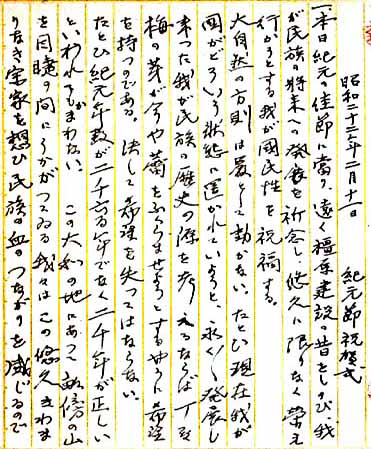 昭和二十三年二月十一日　紀元節祝賀式
「本日紀元の佳節に當り、遠く橿原建設の昔をしのび、我
が民族の将来への発展を祈念し、悠久に限りなく榮え
行かうとする我が國民性を祝福する。
大自然の方則は厳として動かない。たとひ現在我が
國がどういう状態に置かれていようと、永く〳〵発展し
来った我が民族の歴史の跡を考へるならば、丁度
梅の芽が今や蕾をふくらませようとするやうに希望
を持つのである。決して希望を失ってはならない。
たとひ紀元年数が二千六百年でなく二千年が正しい
といわれてもかまわない。この大和の地にあって畝傍の山
を目睫の間にうかがってゐる我々はこの悠久きわま
りなき皇家を想ひ民族の血のつながりを感じるので